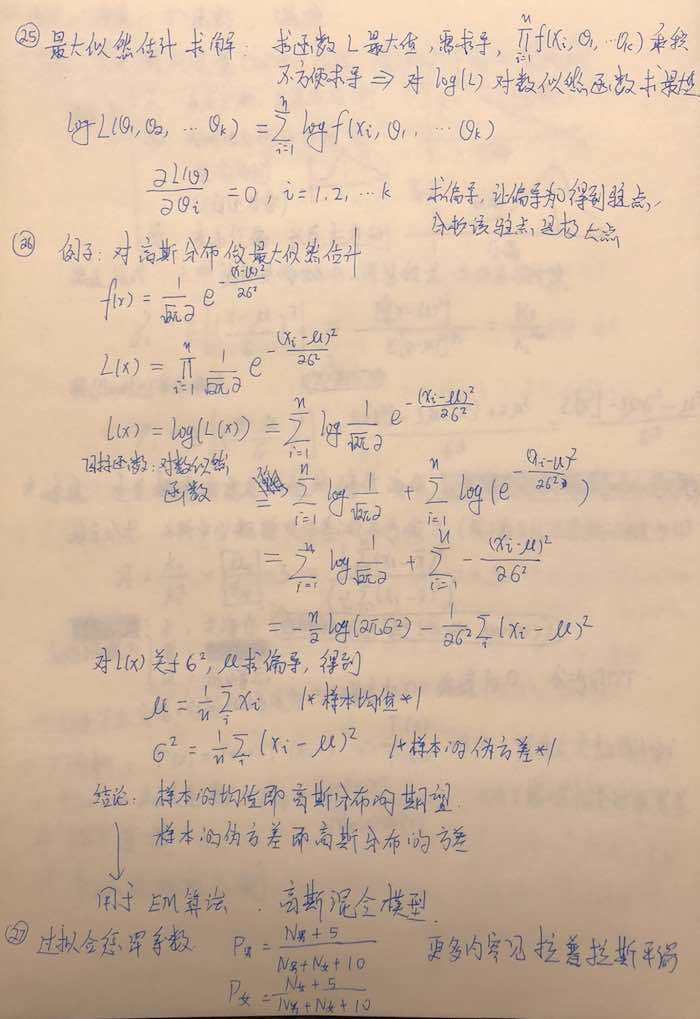 ㉕ 最大似然估计求解: 求函数L最大值,需求导, ∏_{i=1}^{n} f(xi, θ1, …θk) 乘积
不方便求导 ⇒ 对 log(L) 对数似然函数求最值
log L(θ1, θ2, … θk) = ∑_{i=1}^{n} log f(xi, θ1, … θk)
∂L(θ)/∂θi = 0, i=1,2,…k 求偏导,让偏导为0得到驻点,
分析该驻点是极大点
㉖ 例子: 对高斯分布做最大似然估计
f(x) = 1/(√2π σ) e^{-(x-μ)²/2σ²}
L(x) = ∏_{i=1}^{n} 1/(√2π σ) e^{-(xi-μ)²/2σ²}
l(x) = log(L(x)) = ∑_{i=1}^{n} log 1/(√2π σ) e^{-(xi-μ)²/2σ²}
目标函数: 对数似然
函数 = ∑_{i=1}^{n} log 1/(√2π σ) + ∑_{i=1}^{n} log(e^{-(xi-μ)²/2σ²})
= ∑_{i=1}^{n} log 1/(√2π σ) + ∑_{i=1}^{n} -(xi-μ)²/2σ²
= -n/2 log(2πσ²) - 1/2σ² ∑_i (xi-μ)²
对l(x)关于σ², μ求偏导, 得到
μ = 1/n ∑_i xi /*样本均值*/
σ² = 1/n ∑_i (xi-μ)² /*样本的伪方差*/
结论: 样本的均值即高斯分布的期望.
样本的伪方差即高斯分布的方差
↓
用于EM算法、高斯混合模型.
㉗ 过拟合惩罚系数 P男 = (N男+5)/(N男+N女+10) 更多内容见拉普拉斯平滑
P女 = (N女+5)/(N男+N女+10)